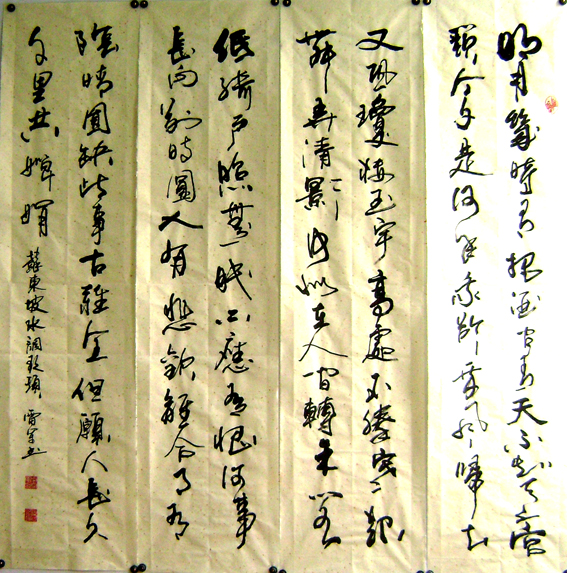 明月幾時有把酒問青天不知天上宮
闕今夕是何年我欲乘風歸去
又恐瓊樓玉宇高處不勝寒起
舞弄清影何似在人間轉朱閣
低綺戶照無眠不應有恨何事
長向別時圓人有悲歡離合月有
陰晴圓缺此事古難全但願人長久
千里共嬋娟 蘇東坡水調歌頭